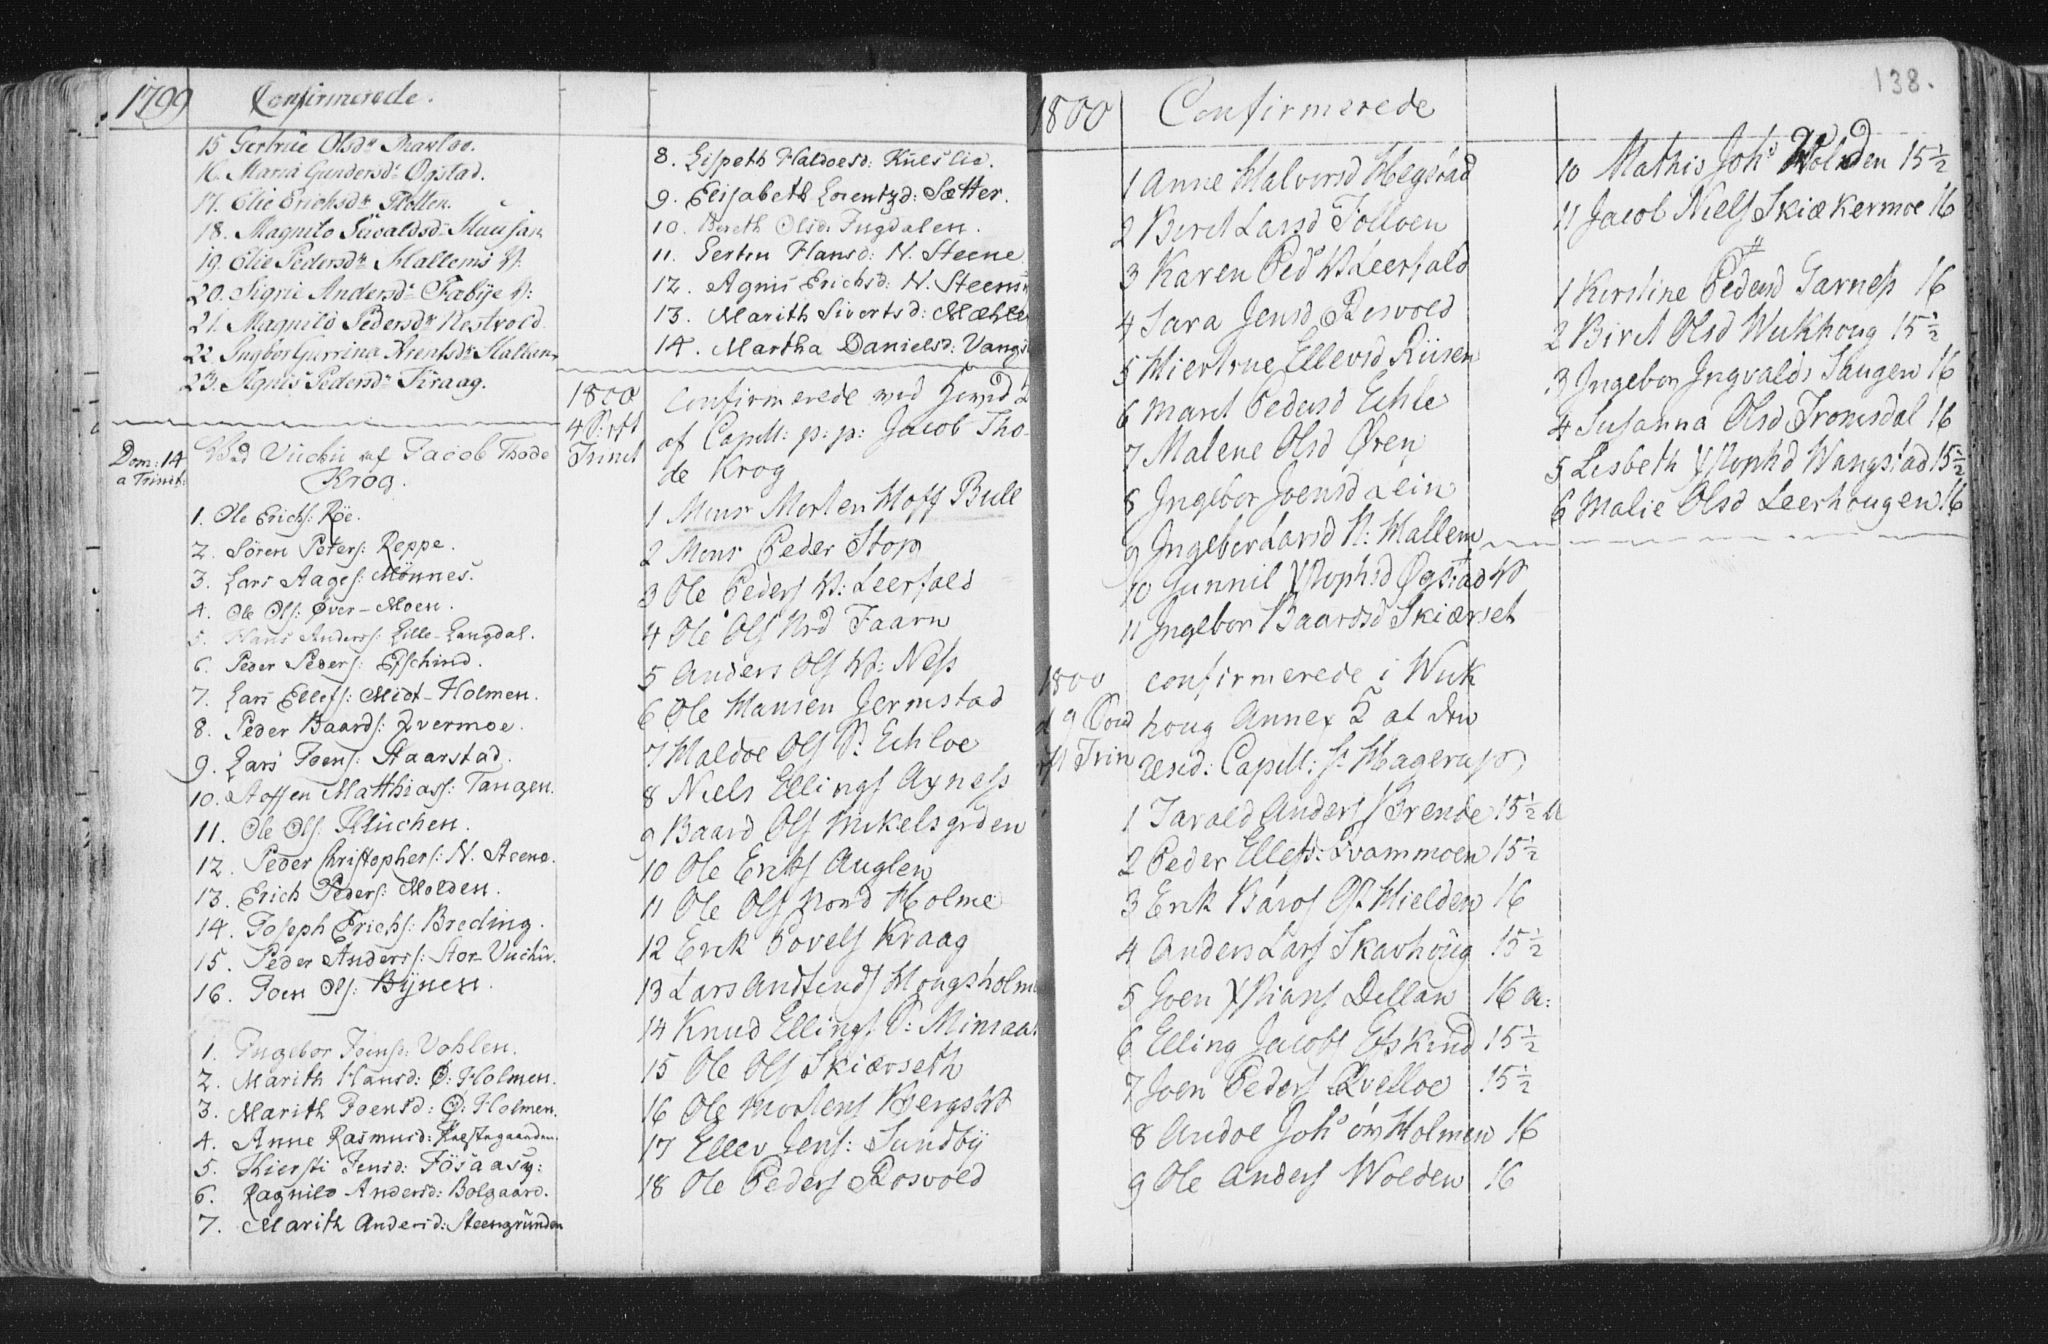 1799 Confirmerede.
15 Gertrue Olsdr
16. Maria Gundersdr Ogstad.
17. Elie Erichsdr
18. Magnilo Siwaldsd:
19. Elie Pedersdr Hallems V:
20. Sigrie Andersdr Fæbÿe V:
21. Magnild Pedersdr Nestvold.
22. Ingbor Gurrina Arentsdr Hallem
23. Agnis Pedersdr Kraag.
Dom: 14 a Trinit:
Wed Vuckü af Jacob Thode
Krog.
1. Ole Erichs: Röe.
2. Sören Peters: Reppe.
3. Lars Aages: Mönnes.
4. Ole Ols: Over-Moen.
5. Hans Anders: Lille-Langdal.
6. Peder Peders: Efschind.
7. Lars Ellefs: Midt-Holmen.
8. Peder Baards: Qvermoe.
9. Lars Joens: Staarstad.
10. Steffen Matthias: Tangen.
11. Ole Ols: Kluchen.
12. Peder Christophers: N. Steene.
13. Erich Peders: Molden.
14. Joseph Erichs: Breding.
15. Peder Anders: Stor-Vuckü.
16. Joen Ols: Bÿnen.
1. Ingebor Joensd: Vohlen.
2. Marith Hansd: Ö: Holmen.
3. Marith Joensd: Ö: Holmen.
4. Anne Rasmusd:
5. Kiersti Jensd:
6. Ragnilo Andersd: Bolgaard.
7. Marith Andersd: Steengrunden
8. Lispeth Haldoesd: Kulslie.
9. Elisabeth Lorentzd: Sætter.
10. Bereth Olsd: Jngdalen.
11. Gesten Hansd: N. Steene
12. Agnis Erichsd: N. Steene
13. Marith Sivertsd: Mæhle
14. Martha Danielsd: Vangs
1800
4 S: eft
Trinit
Confirmerede ved Hovid
af Capell: p: p: Jacob Tho-
de Krog
1 Monr Morten Hoff Bull
2 Monr Peder Stop
3 Ole Peders V: Leerfald
4 Ole Ols Nrd Faarn
5 Anders Ols V: Ness
6 Ole Hansen Jermstad
7 Haldoe Ols V: Echloe
8 Niels Ellings Ayness
9 Baard Ols Mikelsgrden
10 Ole Eriks Auglen
11 Ole Ols Nord Holme
12 Erik Povels Kraag
13 Lars Andfinds Hougsholm
14 Knud Ellings V: Minsaas
15 Ole Ols Skiærseth
16 Ole Mortens Bergs Vt
17 Ellev Jens: Sundbÿ
18 Ole Peders Rosvold
138.
1800 Confirmerede
1 Anne Halvorsd Hegstad
2 Beret Larsd Tolloen
3 Karen Pedsd V Leerfald
4 Sara Jensd Rosvold
5 Miertrue Ellevsd Riisen
6 Maret Pedersd Echle
7 Malene Olsd Øren
8 Ingebor Joensd Lein
9 Ingebor Larsd N: Hallem
10 Gunnil Xstophsd Øgstad Vt
11 Ingebor Baardsd Skiærset
1800
d 9 Sond
eft Trin
confirmerede i Wuk
houg Annex af den
resid: Capell: Hr Hagerup
1 Tarald Anders Grende 15 1/2 A
2 Peder Ellefs: Svammoen 15 1/2
3 Erik Bårds Øst Hielden 16
4 Anders Lars Skavhoug 15 1/2
5 Joen Xstians Dillan 16 a:
6 Elling Jacobs Efskind 15 1/2
7 Joen Peders Qvelloe 15 1/2
8 Andoe Johs öv Holmen 16
9 Ole Anders Wolden 16
10 Mathis Johs Wolden 15 1/2
11 Jacob Niels Skiækermoe 16
1 Kirstine Pedersd Garness 16
2 Biret Olsd Wukhoug 15 1/2
3 Ingebor Ingvalds Haugen 16
4 Susanna Olsd Tromsdal 16
5 Lisbeth Xstophd Wangstad 15 1/2
6 Malie Olsd Leerhougen 16